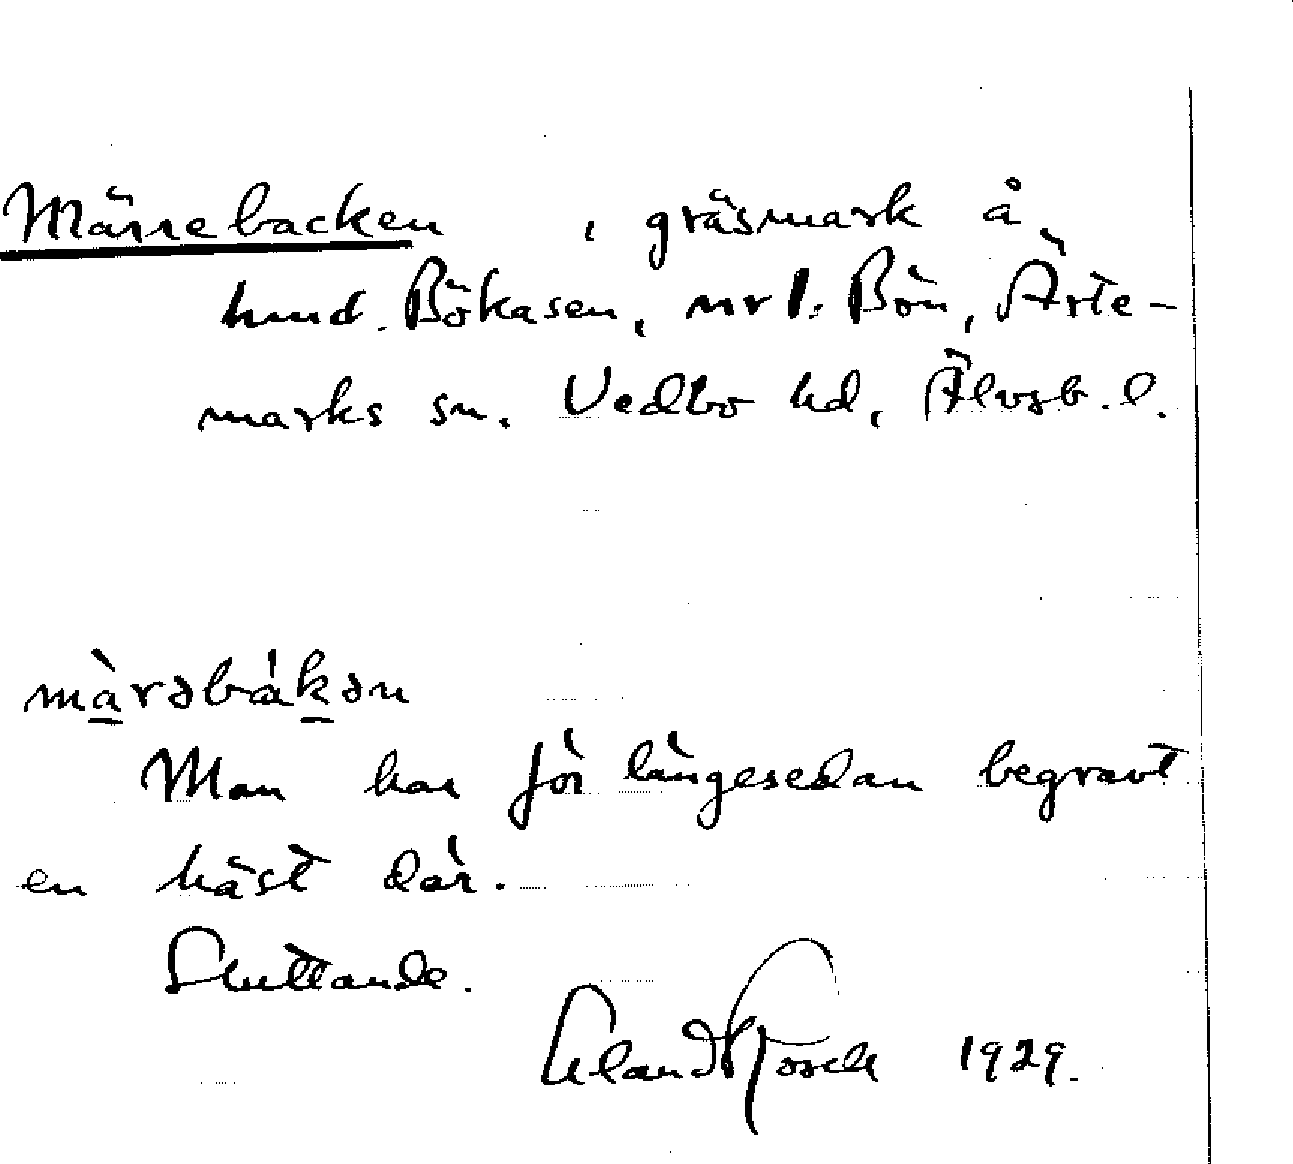 Märrebacken, gräsmark å
hmd. Bökasen, nr 1. Bön, Ärte-
marks sn. Vedbo hd, Älvsb. l.
màrəbákən
Man har för längesedan begravt
en häst där.
Sluttande.
1929.